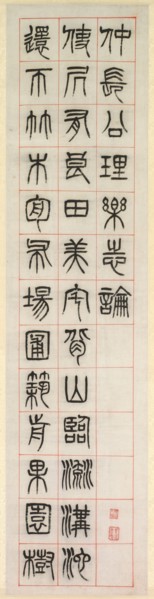 仲長公理樂志論
使凥有良田美宅背山臨流溝池
還帀竹木周布場圃築前果園樹